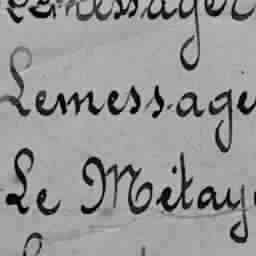 Lemessager
Lemessage
Le Métay